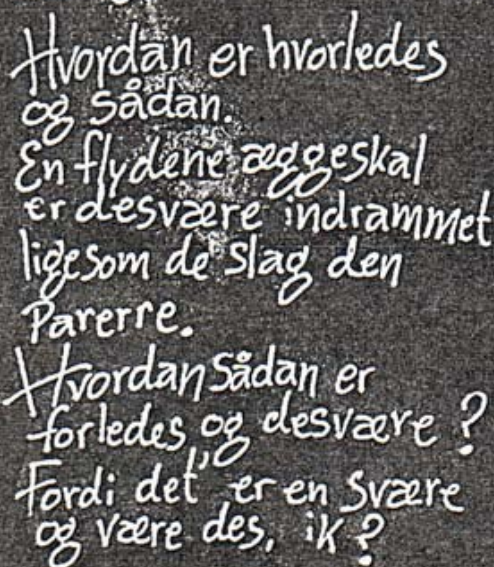 Hvordan er hvorledes
og sådan.
En flydene æggeskal
er desvære indrammet
ligesom de slag den
Parerre.
Hvordan sådan er
forledes og desvære ?
Fordi det er en svære
og være des, ik ?